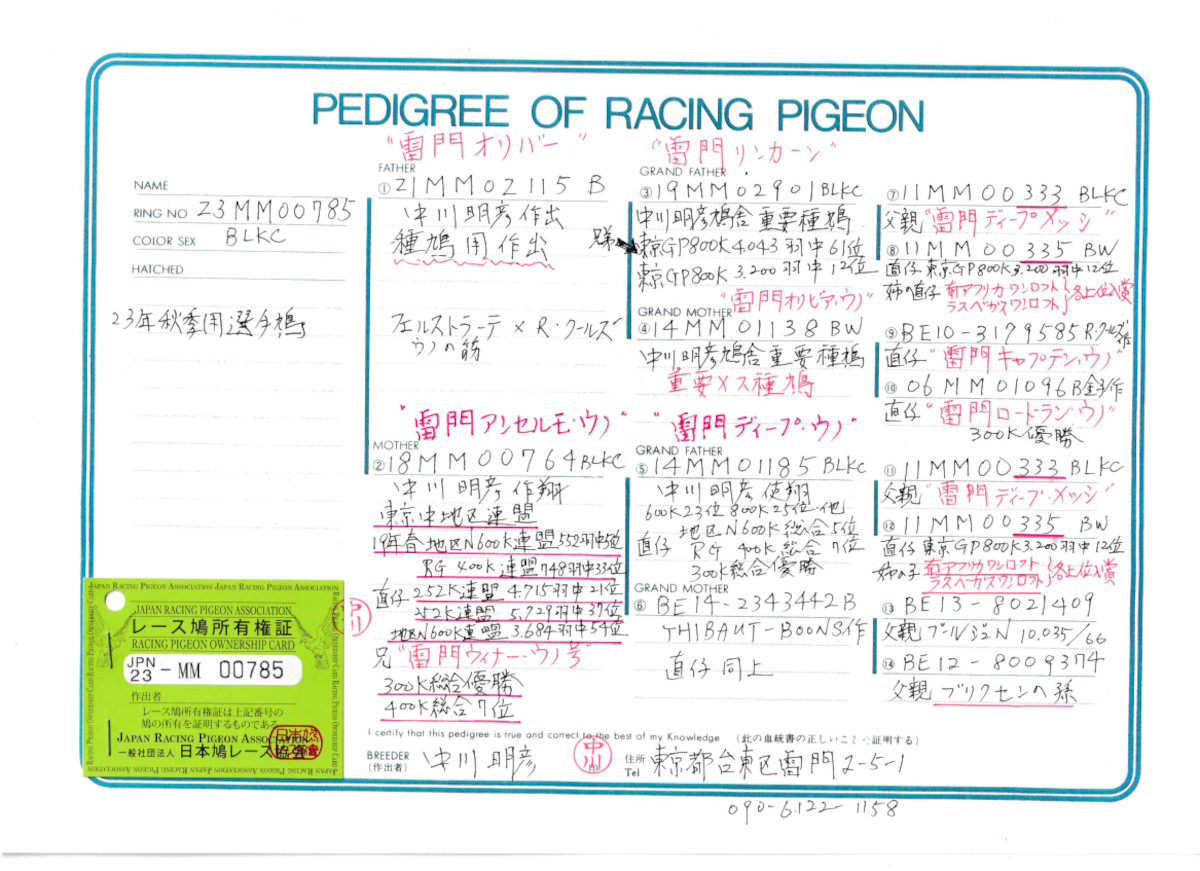 PEDIGREE OF RACING PIGEON
NAME
RING NO 23MM00785
COLOR SEX BLKC
HATCHED
23年秋季用選手鳩
"雷門オリバー"
FATHER
①21MM02115 B
中川明彦作出
種鳩用作出
フェルストラーテ×R・クールズ
ウノの筋
"雷門アンセルモ・ウノ"
MOTHER
②18MM00764BLKC
中川明彦作翔
東京中地区連盟
19年春地区N600K連盟552羽中5位
RG 400K連盟748羽中33位
直仔 252K連盟4.715羽中21位
252K連盟5.729羽中37位
地区N600K連盟3.684羽中54位
兄"雷門ウィナー・ウノ号"
300K総合優勝
400K総合7位
"雷門リンカーン"
GRAND FATHER
③19MM02901BLKC
中川明彦鳩舎重要種鳩
東京GP800K4.043羽中61位
東京GP800K3.200羽中12位
"雷門オリビア・ウノ"
GRAND MOTHER
④14MM01138BW
中川明彦鳩舎重要種鳩
重要メス種鳩
"雷門ディープ・ウノ"
GRAND FATHER
⑤14MM01185BLKC
中川明彦使翔
600K23位800K25位他
地区N600K総合5位
直仔 RG 400K総合7位
300K総合優勝
GRAND MOTHER
⑥BE14-2343442B
THIBAUT-BOONS作
直仔同上
⑦11MM00333BLKC
父親"雷門ディープメッシ"
⑧11MM00335 BW
直仔東京GP800K3.200羽中12位
姉の直仔 南アフリカワンロフト
ラスベガスワンロフト 各上位入賞
⑨BE10-3179585R・クールズ作
直仔"雷門キャプテン・ウノ"
⑩06MM01096B金子作
直仔"雷門ロードラン・ウノ"
300K優勝
⑪11MM00333BLKC
父親"雷門ディープ・メッシ"
⑫11MM00335 BW
直仔東京GP800K3.200羽中12位
姉の子 南アフリカワンロフト
ラスベガスワンロフト 各上位入賞
⑬BE13-8021409
父親 ブールジェN10.035/66
⑭BE12-8009374
父親 ブリクセンの孫
I certify that this pedigree is true and correct to the best of my Knowledge (此の血統書の正しいことを証明する)
BREEDER
(作出者)
中川明彦
中川
住所
Tel
東京都台東区雷門2-5-1
090-6122-1158
JAPAN RACING PIGEON ASSOCIATION
レース鳩所有権証
RACING PIGEON OWNERSHIP CARD
JPN
23-MM 00785
作出者
レース鳩所有権証は上記番号の
鳩の所有を証明するものである
JAPAN RACING PIGEON ASSOCIATION
一般社団法人 日本鳩レース協会